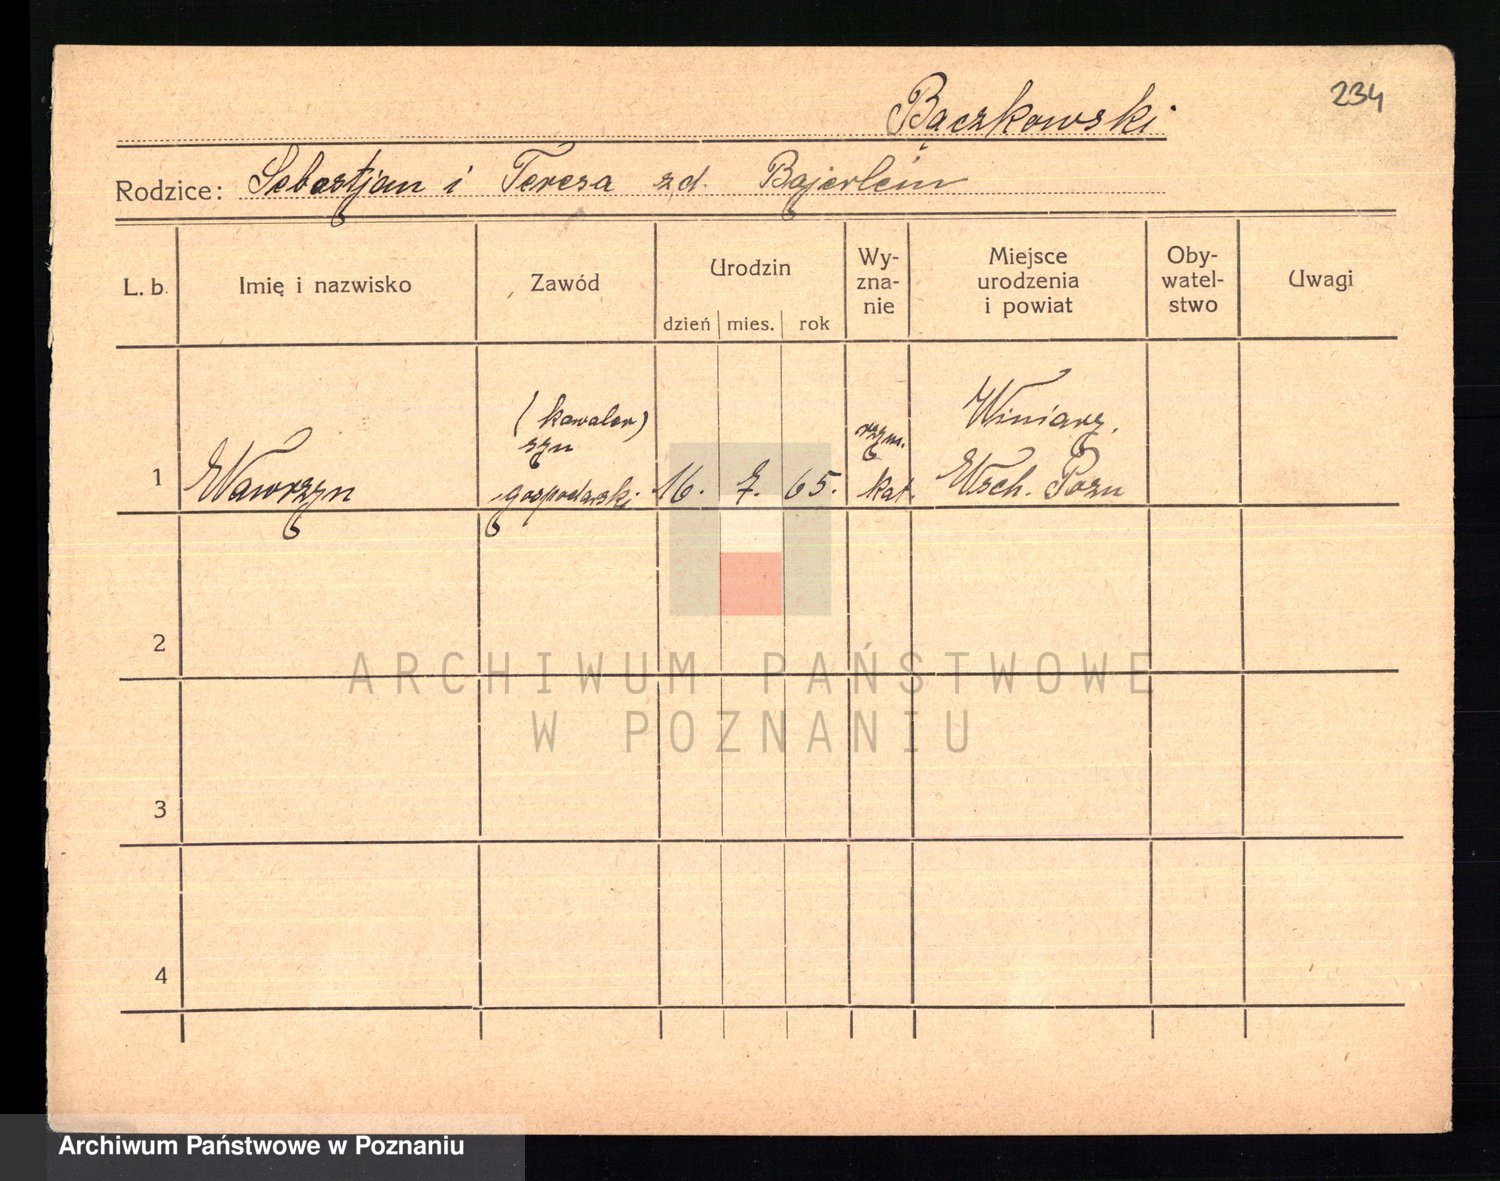 234
Bączkowski
Rodzice: Sebastjan i Teresa zd. Bajerlein
L. b. Imię i nazwisko Zawód Urodzin dzień mies. rok Wy-zna-nie Miejsce urodzenia i powiat Oby-watel-stwo Uwagi
(kawaler) Winiary.
syn rzym.
1 Wawrzyn gospodarski 16. 7. 65. kat. Wsch. Pozn
2
3
4
ARCHIWUM PAŃSTWOWE
W POZNANIU
Archiwum Państwowe w Poznaniu